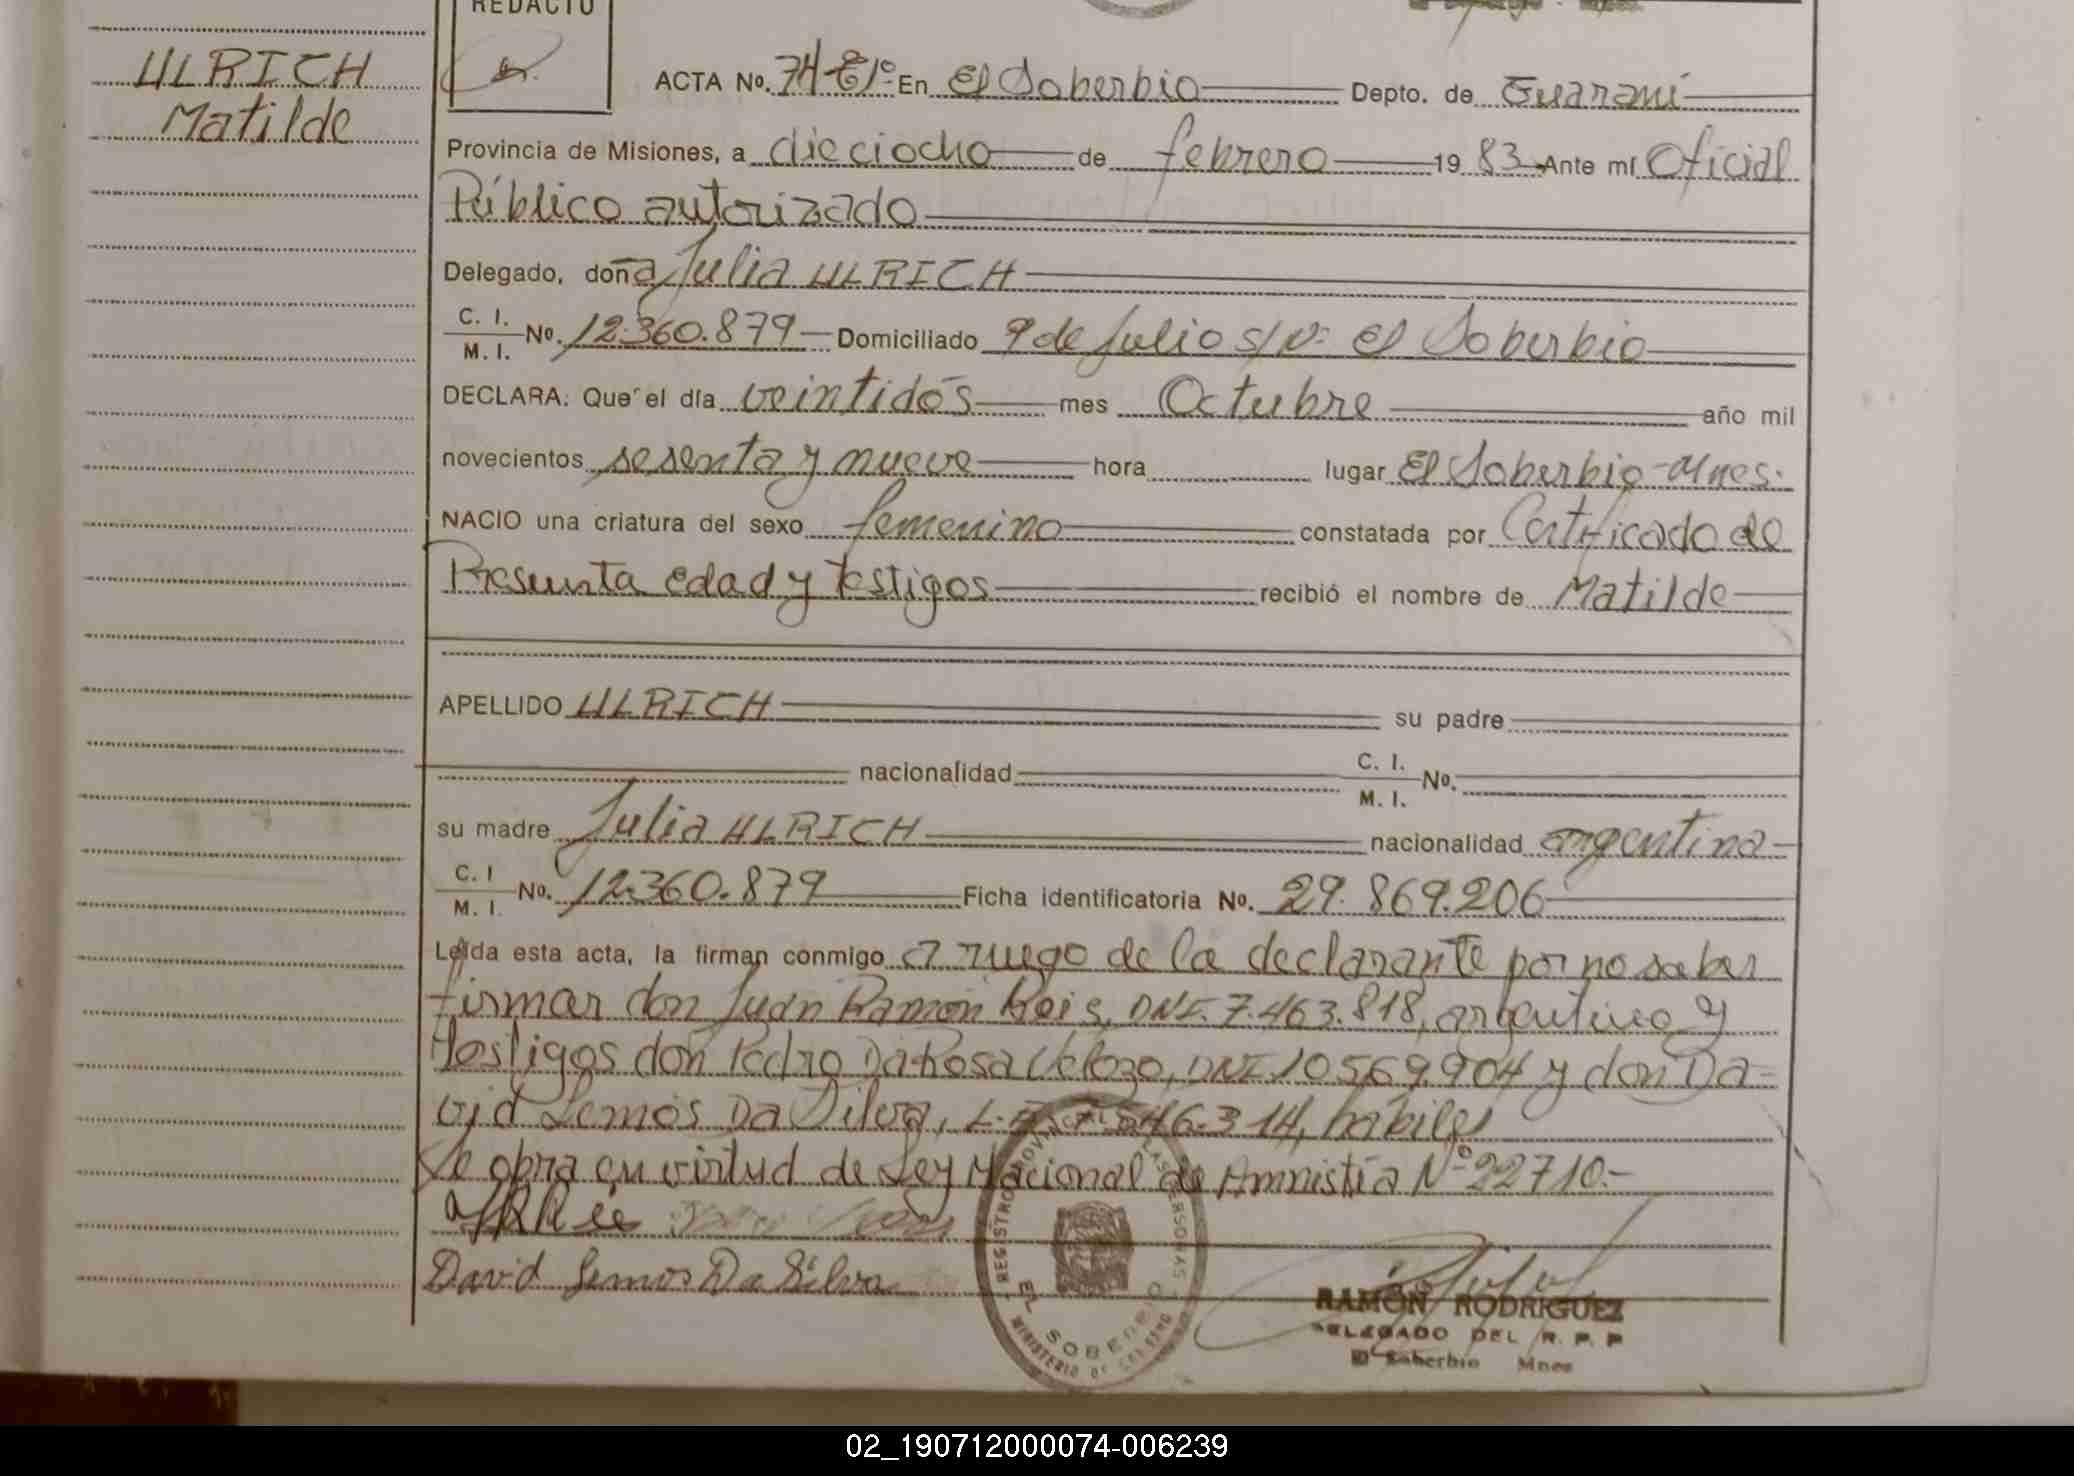 REDACTO
ULRICH
Matilde
ACTA No. 74-Eº En El Soberbio Depto. de Guaraní
Provincia de Misiones, a dieciocho de febrero 19 83 Ante mí Oficial
Público autorizado
Delegado, doña Julia ULRICH
C. I.
M. I. No. 12.360.879 Domiciliado 9 de Julio s/nº El Soberbio
DECLARA: Que el día veintidós mes Octubre año mil
novecientos sesenta y nueve hora lugar El Soberbio-Mnes.
NACIO una criatura del sexo femenino constatada por Certificado de
Presunta edad y testigos recibió el nombre de Matilde
APELLIDO ULRICH su padre
nacionalidad C. I.
M. I. No.
su madre Julia ULRICH nacionalidad argentina
C. I
M. I. No. 12.360.879 Ficha identificatoria No. 29.869.206
Leída esta acta, la firman conmigo a ruego de la declarante por no saber
firmar don Juan Ramón Reis, DNI. 7.463.818, argentino y
testigos don Pedro Da Rosa Velozo, DNI 10.569.904 y don Da-
vid Lemos Da Silva, L.E. 7.546.314, hábiles
Se obra en virtud de Ley Nacional de Amnistía Nº 22710.-
David Lemos Da Silva
REGISTRO PROVINCIAL DE LAS PERSONAS
EL SOBERBIO
MINISTERIO DE GOBIERNO
RAMÓN RODRIGUEZ
DELEGADO DEL R. P. P
El Soberbio Mnes
02_190712000074-006239